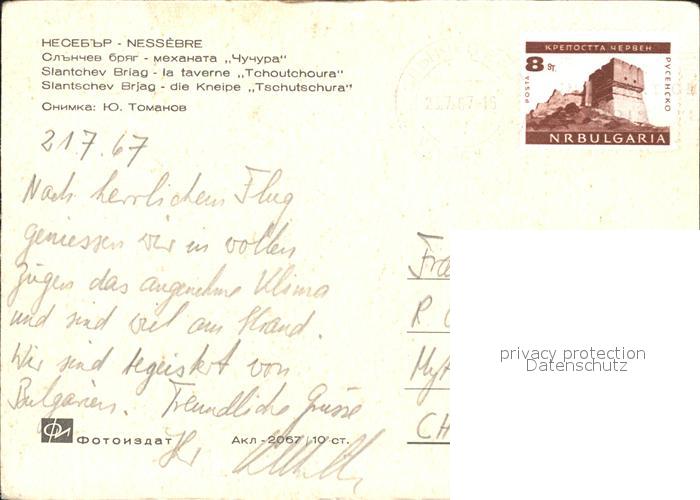 НЕСЕБЪР - NESSÈBRE
Слънчев бряг - механата „Чучура"
Slantchev Briag - la taverne „Tchoutchoura"
Slantschev Brjag - die Kneipe „Tschutschura"
Снимка: Ю. Томанов
21.7.67
Nach herrlichem Flug
geniessen wir in vollen
Zügen das angenehme Klima
und sind viel am Strand.
Wir sind begeistert von
Bulgarien. Freundliche Grüsse
Ihr
Фотоиздат Акл - 2067/10 ст.
КРЕПОСТТА ЧЕРВЕН
8 ST.
POSTA
РУСЕНСКО
NRBULGARIA
CH
privacy protection
Datenschutz